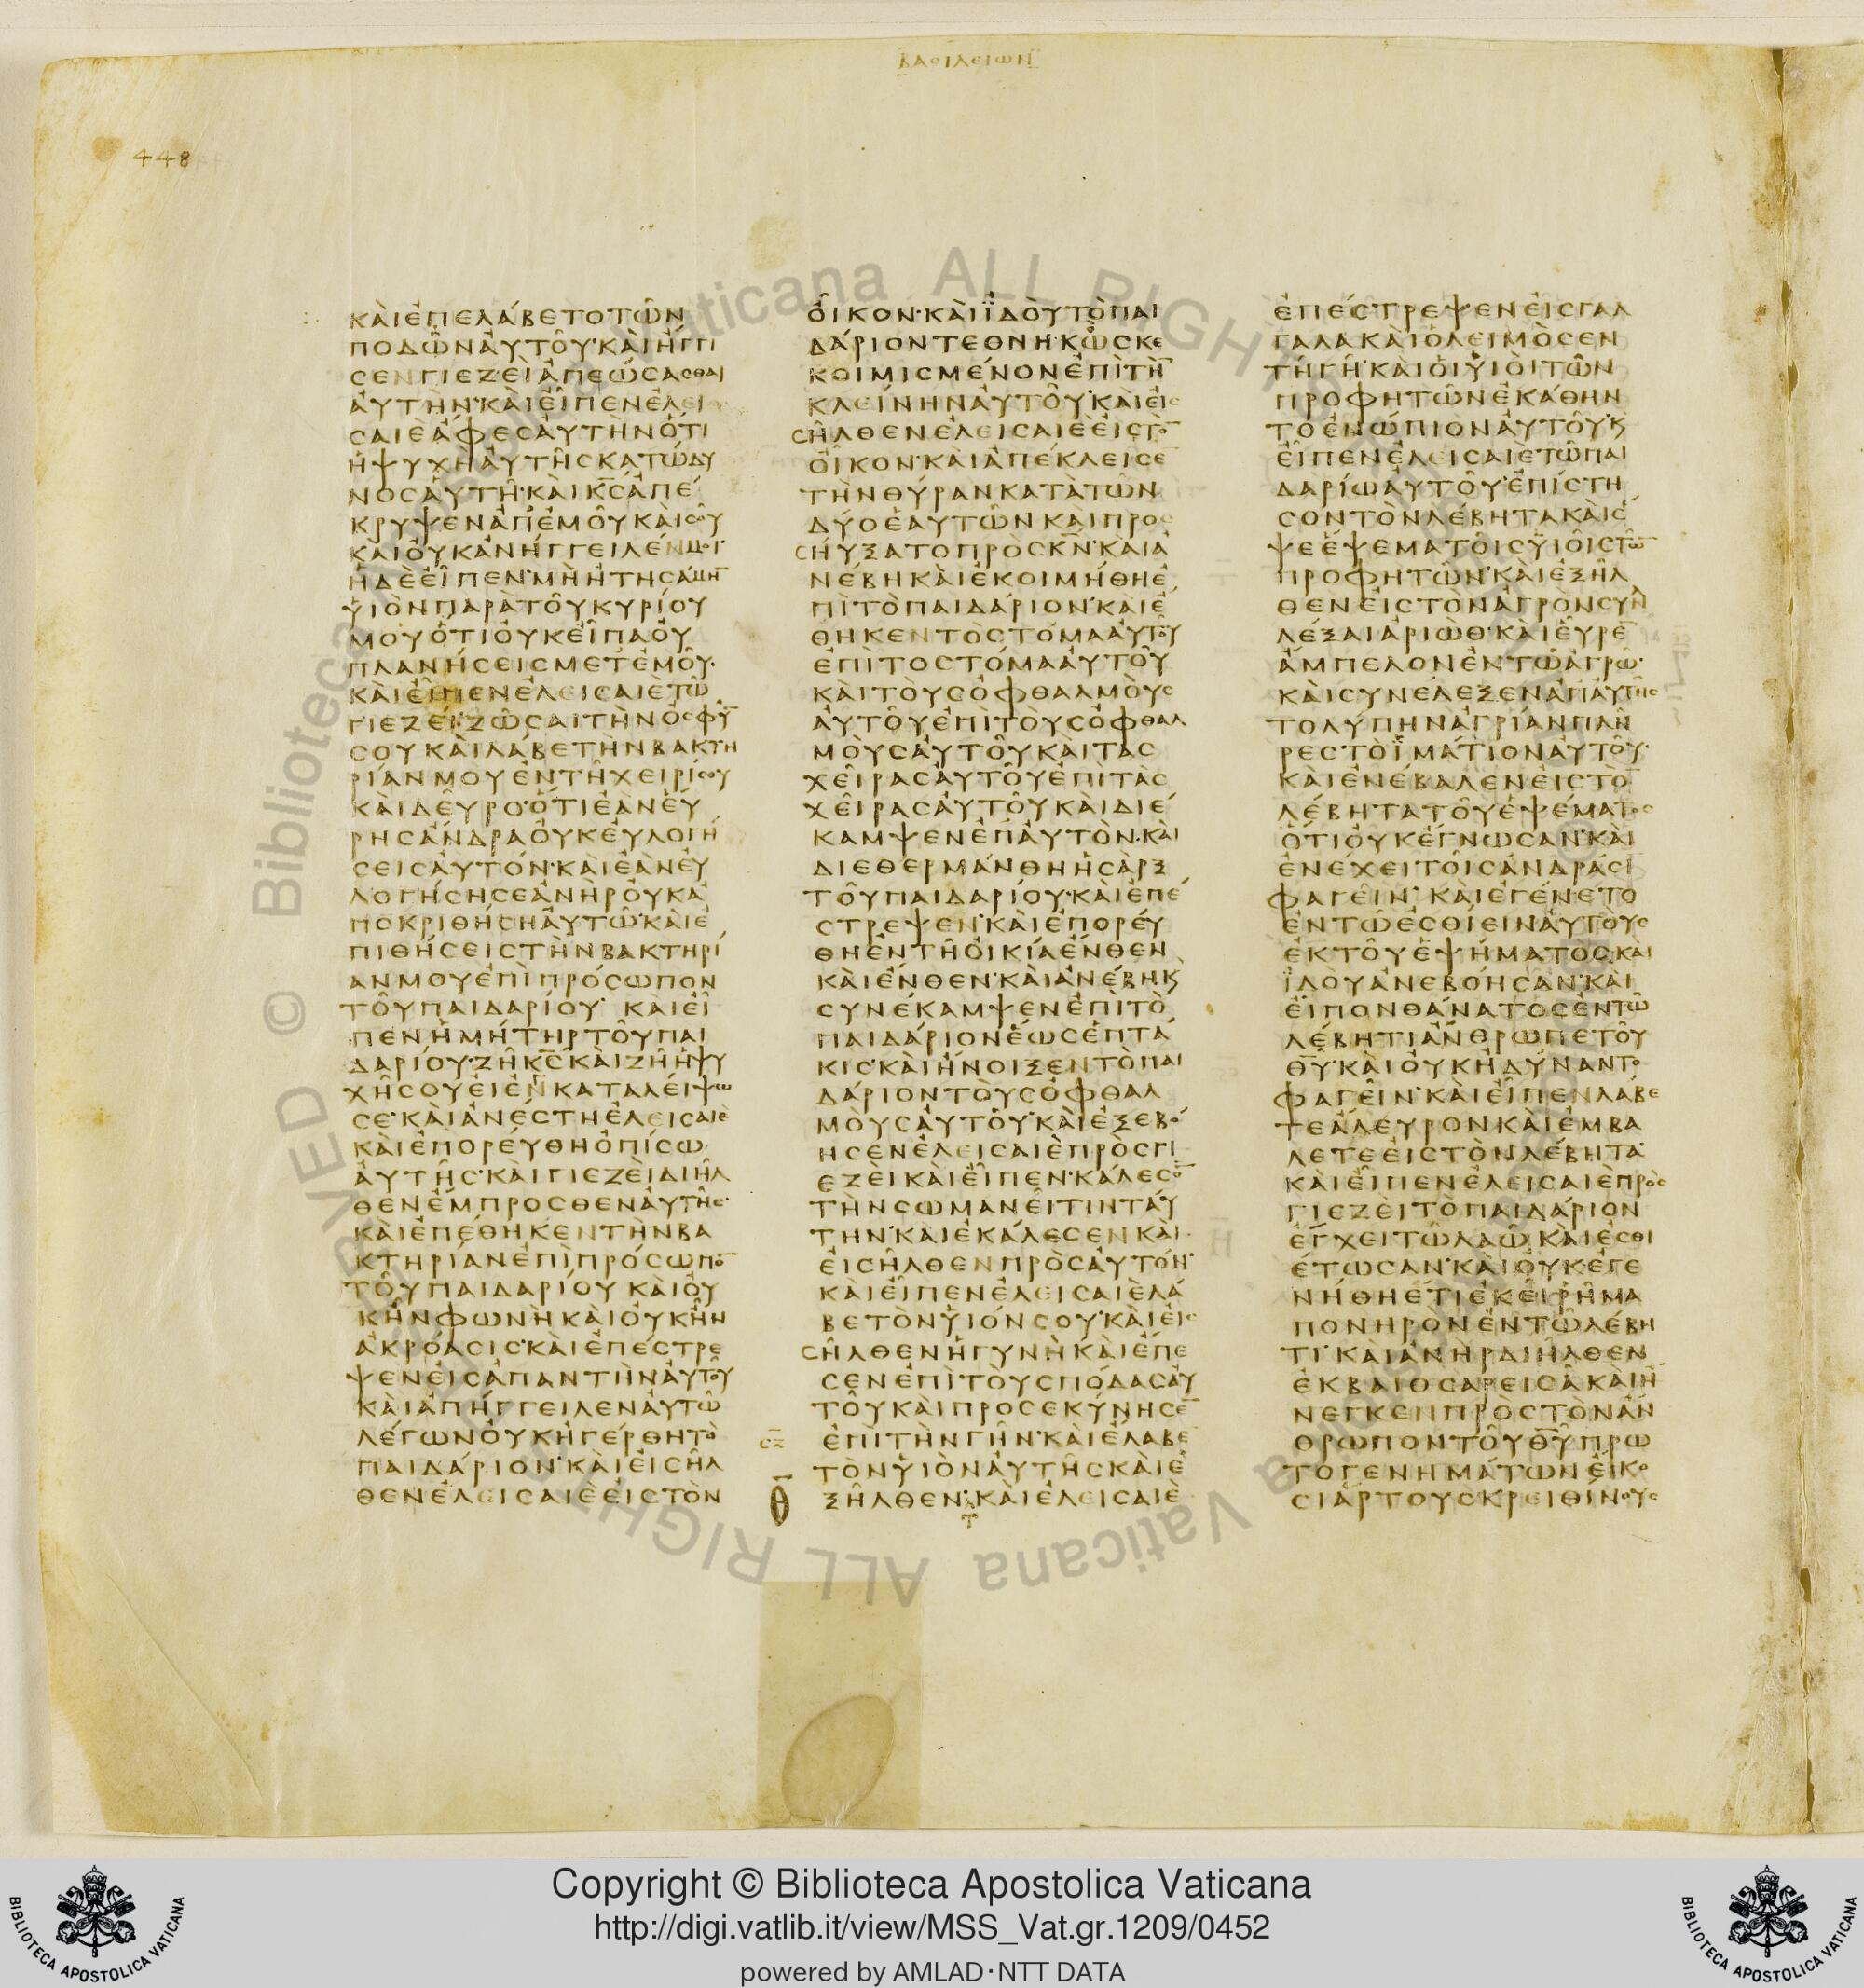 ΒΑϹΙΛΕΙΩΝ
448
ΚΑῚἘΠΕΛΆΒΕΤΟΤΩ͂Ν
ΠΟΔΩ͂ΝΑΥ̓ΤΟΥ͂·ΚΑῚἬΓΓΙ
ϹΕΝΓΙΕΖΕῚἈΠΕΏϹΑϹΘΑΙ
ΑΥ̓ΤΉΝ·ΚΑῚΕΙ͂̓ΠΕΝἘΛΕΙ
ϹΑΙΕἌΦΕϹΑΥ̓ΤΗΝὍΤΙ
ἩΨΥΧῊΑΥ̓ΤΗ͂ϹΚΑΤΏΔΥ
ΝΟϹΑΥ̓ΤΗ͂·ΚΑῚΚ̅Ϲ̅ἈΠΈ
ΚΡΥΨΕΝἈΠἘΜΟΥ͂ΚΑῚϹΟΥ͂
ΚΑῚΟΥ̓ΚἈΝΉΓΓΕΙΛΈΝΜΟΙ·
ἩΔῈΕΙ͂̓ΠΕΝ·ΜῊἨΤΗϹΆΜΗ̅
ΥΙῸΝΠΑΡᾺΤΟΥ͂ΚΥΡΊΟΥ
ΜΟΥὍΤΙΟΥ̓ΚΕΙ͂̓ΠΑΟΥ̓
ΠΛΑΝΉϹΕΙϹΜΕΤἘΜΟΥ͂·
ΚΑῚΕΙ͂̓ΠΕΝἘΛΕΙϹΑΙῈΤΩ͂
ΓΙΕΖΕῚΖΩ͂ϹΑΙΤῊΝὈϹΦΥ̅
ϹΟΥΚΑῚΛΆΒΕΤῊΝΒΑΚΤΗ
ΡΊΑΝΜΟΥἘΝΤΗ͂ΧΕΙΡΊϹΟΥ
ΚΑῚΔΕΥ͂ΡΟ·ὍΤΙἘᾺΝΕὝ
ΡΗϹἌΝΔΡΑΟΥ̓ΚΕΥ̓ΛΟΓΉ
ϹΕΙϹΑΥ̓ΤΌΝ·ΚΑῚἘᾺΝΕΥ̓
ΛΟΓΉϹΗϹΕἈΝΗΡΟΥ̓ΚΑ
ΠΟΚΡΙΘΉϹΗΑΥ̓ΤΩ͂·ΚΑῚἘ
ΠΙΘΉϹΕΙϹΤῊΝΒΑΚΤΗΡΊ
ΑΝΜΟΥἘΠῚΠΡΌϹΩΠΟΝ
ΤΟΥ͂ΠΑΙΔΑΡΊΟΥ· ΚΑῚΕΙ͂̓
ΠΕΝἩΜΉΤΗΡΤΟΥ͂ΠΑΙ
ΔΑΡΊΟΥ·ΖΗ͂Κ̅Ϲ̅ΚΑῚΖΗ͂ἩΨΥ
ΧΉϹΟΥΕΙἘΝΚΑΤΑΛΕΊΨΩ
ϹΕ·ΚΑῚἈΝΈϹΤΗἘΛΕΙϹΑΙῈ
ΚΑῚἘΠΟΡΕΎΘΗὈΠΊϹΩ
ΑΥ̓ΤΗ͂Ϲ·ΚΑῚΓΙΕΖΕῚΔΙΗ͂Λ
ΘΕΝἜΜΠΡΟϹΘΕΝΑΥ̓ΤΗ͂Ϲ·
ΚΑῚἘΠΈΘΗΚΕΝΤῊΝΒΑ
ΚΤΗΡΊΑΝἘΠῚΠΡΌϹΩΠΟ̅
ΤΟΥ͂ΠΑΙΔΑΡΊΟΥ ΚΑῚΟΥ̓
ΚΗ͂̓ΝΦΩΝῊΚΑῚΟΥ̓ΚΗ͂̓Ν
ἈΚΡΌΑϹΙϹ·ΚΑῚἘΠΈϹΤΡΕ
ΨΕΝΕἸϹἈΠΑΝΤῊΝΑΥ̓ΤΟΥ͂
ΚΑῚἈΠΉΓΓΕΙΛΕΝΑΥ̓ΤΩ͂
ΛΈΓΩΝΟΥ̓ΚἨΓΈΡΘΗΤῸ
ΠΑΙΔΆΡΙΟΝ·ΚΑῚΕἸϹΗ͂Λ
ΘΕΝἘΛΕΙϹΑΙῈΕἸϹΤῸΝ
ΟΙ͂̓ΚΟΝ·ΚΑῚΪΔΟῪΤῸΠΑΙ
ΔΆΡΙΟΝΤΕΘΝΗ·ΚΩϹΚΕ
ΚΟΙΜΙϹΜΈΝΟΝἘΠῚΤῊ̅
ΚΛΕΊΝΗΝΑΥ̓ΤΟΥ͂·ΚΑῚΕἸ
ϹΗ͂ΛΘΕΝἘΛΕΙϹΑΙῈΕἸϹΤῸ̅
ΟΙ͂̓ΚΟΝ·ΚΑῚἈΠΈΚΛΕΙϹΕ̅
ΤῊΝΘΎΡΑΝΚΑΤᾺΤΩ͂Ν
ΔΎΟἙΑΥΤΩ͂ΝΚΑῚΠΡΟϹ
ϹΗΎΞΑΤΟΠΡῸϹΚ̅Ν̅·ΚΑῚἈ
ΝΈΒΗΚΑῚἘΚΟΙΜΉΘΗἘ
ΠῚΤῸΠΑΙΔΆΡΙΟΝ·ΚΑῚἜ
ΘΗΚΕΝΤῸϹΤΌΜΑΑΥ̓ΤΟΥ͂
ἘΠῚΤΟϹΤΌΜΑΑΥ̓ΤΟΥ͂
ΚΑῚΤΟῪϹὈΦΘΑΛΜΟῪϹ
ΑΥ̓ΤΟΥ͂ἘΠῚΤΟῪϹὈΦΘΑΛ
ΜΟῪϹΑΥ̓ΤΟΥ͂ΚΑῚΤᾺϹ
ΧΕΙ͂ΡΑϹΑΥ̓ΤΟΥ͂ἘΠῚΤᾺϹ
ΧΕΙ͂ΡΑϹΑΥ̓ΤΟΥ͂ΚΑῚΔΙΈ
ΚΑΜΨΕΝἘΠΑΥ̓ΤῸΝ·ΚΑῚ
ΔΙΕΘΕΡΜΆΝΘΗἩϹᾺΡΞ
ΤΟΥ͂ΠΑΙΔΑΡΊΟΥ·ΚΑῚἘΠΈ
ϹΤΡΕΨΕΝ·ΚΑῚἘΠΟΡΕΎ
ΘΗἘΝΤΗ͂ΟἸΚΊΑἜΝΘΕΝ
ΚΑῚἜΝΘΕΝ·ΚΑῚἈΝΈΒΗΚ
ϹΥΝΈΚΑΜΨΕΝἘΠῚΤῸ
ΠΑΙΔΆΡΙΟΝἝΩϹἙΠΤΆ
ΚΙϹ·ΚΑῚἬΝΟΙΞΕΝΤῸΠΑΙ
ΔΆΡΙΟΝΤΟῪϹὈΦΘΑΛ
ΜΟῪϹΑΥ̓ΤΟΥ͂·ΚΑῚἘΞΕΒΌ
ΗϹΕΝἘΛΕΙϹΑΙῈΠΡῸϹΓΙ
ΕΖΕῚΚΑῚΕΙ͂̓ΠΕΝ·ΚΆΛΕϹΟ̅
ΤῊΝϹΩΜΑΝΕΊΤΙΝΤΑΎ
ΤΗΝ·ΚΑῚἘΚΆΛΕϹΕΝΚΑῚ
ΕἸϹΗ͂ΛΘΕΝΠΡῸϹΑΥ̓ΤΌΝ·
ΚΑῚΕΙ͂̓ΠΕΝἘΛΕΙϹΑΙῈΛΆ
ΒΕΤῸΝΥἹΌΝϹΟΥ·ΚΑῚΕἸ
ϹΗ͂ΛΘΕΝἩΓΥΝῊΚΑῚἘΠΕ
ϹΕΝἘΠῚΤΟῪϹΠΌΔΑϹΑΥ̓
ΤΟΥ͂ΚΑῚΠΡΟϹΕΚΎΝΗϹΕ̅
ἘΠῚΤῊΝΓΗ͂Ν·ΚΑῚἜΛΑΒΕ̅
ΤῸΝΥἹῸΝΑΥ̓ΤΗ͂ϹΚΑῚἘ
ΞΗ͂ΛΘΕΝ·ΚΑῚἘΛΕΙϹΑΙῈ
Θ
ἘΠΈϹΤΡΕΨΕΝΕἸϹΓΑΛ
ΓΑΛΑΚΑῚὉΛΕΙΜῸϹΕΝ
ΤΗ͂ΓΗ͂·ΚΑῚΟἹΥἹΟῚΤΩ͂Ν
ΠΡΟΦΗΤΩ͂ΝἘΚΆΘΗΝ
ΤΟἘΝΏΠΙΟΝΑΥ̓ΤΟΥ͂·Κ
ΕΙ͂̓ΠΕΝἘΛΕΙϹΑΙῈΤΩ͂ΠΑΙ
ΔΑΡΊΩΑΥ̓ΤΟΥ͂·ἘΠΊϹΤΗ
ϹΟΝΤῸΝΛΈΒΗΤΑΚΑῚἝ
ΨΕἝΨΕΜΑΤΟΙ͂ϹΥἹΟΙ͂ϹΤΩ͂̅
ΠΡΟΦΗΤΩ͂Ν·ΚΑῚἘΞΗ͂Λ
ΘΕΝΕἸϹΤῸΝἈΓΡῸΝϹΥΛ
ΛΈΞΑΙἈΡΙΩΘ·ΚΑῚΕΥ͂̔ΡΕ̅
ἌΜΠΕΛΟΝἘΝΤΩ͂ἈΓΡΩ͂·
ΚΑῚϹΥΝΈΛΕΞΕΝἈΠΑΥ̓ΤΗ͂Ϲ
ΤΟΛΎΠΗΝἈΓΡΊΑΝΠΛΗ͂
ΡΕϹΤῸἹΜΆΤΙΟΝΑΥ̓ΤΟΥ͂·
ΚΑῚἘΝΈΒΑΛΕΝΕἸϹΤῸ̅
ΛΈΒΗΤΑΤΟΥ͂ἙΨΈΜΑΤΟϹ
ὍΤΙΟΥ̓ΚἜΓΝΩϹΑΝ·ΚΑῚ
ἘΝΈΧΕΙΤΟΙ͂ϹἈΝΔΡΆϹΙ
ΦΑΓΕΙ͂Ν· ΚΑῚἘΓΈΝΕΤΟ
ἘΝΤΩ͂ἘϹΘΊΕΙΝΑΥ̓ΤΟῪϹ
ἘΚΤΟΥ͂ἙΨΉΜΑΤΟϹΚΑΙ
ἸΔΟῪἈΝΕΒΌΗϹΑΝ·ΚΑῚ
ΕΙ͂̓ΠΟΝΘΆΝΑΤΟϹἘΝΤΩ͂
ΛΈΒΗΤΙἌΝΘΡΩΠΕΤΟΥ͂
Θ̅Υ̅·ΚΑῚΟΥ̓ΚἨΔΎΝΑΝΤΟ
ΦΑΓΕΙ͂Ν·ΚΑῚΕΙ͂̓ΠΕΝΛΆΒΕ
ΤΕἌΛΕΥΡΟΝΚΑῚἘΜΒΑ
ΛΕΤΕΕἸϹΤῸΝΛΈΒΗΤΑ·
ΚΑῚΕΙ͂̓ΠΕΝἘΛΕΙϹΑΙῈΠΡῸϹ
ΓΙΕΖΕῚΤῸΠΑΙΔΆΡΙΟΝ
ἜΓΧΕΙΤΩ͂ΛΑΩ͂ΚΑῚἘϹΘΙ
ΈΤΩϹΑΝ·ΚΑῚΟΥ̓ΚἘΓΕ
ΝΉΘΗἜΤΙἘΚΕΙ͂ΡΗ͂ΜΑ
ΠΟΝΗΡῸΝἘΝΤΩ͂ΛΈΒΗ
ΤΙ·ΚΑῚἈΝῊΡΔΙΗ͂ΛΘΕΝ
ἘΚΒΑΙΟϹΑΡΕΙϹᾺΚΑῚἬ
ΝΕΓΚΕΝΠΡῸϹΤῸΝἌΝ
ΘΡΩΠΟΝΤΟΥ͂Θ̅Υ̅ΠΡΩ
ΤΟΓΕΝΗΜΆΤΩΝΕἼΚΟ
ϹΙἌΡΤΟΥϹΚΡΕΙΘΊΝΟΥϹ
Copyright © Biblioteca Apostolica Vaticana
http://digi.vatlib.it/view/MSS_Vat.gr.1209/0452
powered by AMLAD·NTT DATA
BIBLIOTECA APOSTOLICA VATICANA
BIBLIOTECA APOSTOLICA VATICANA